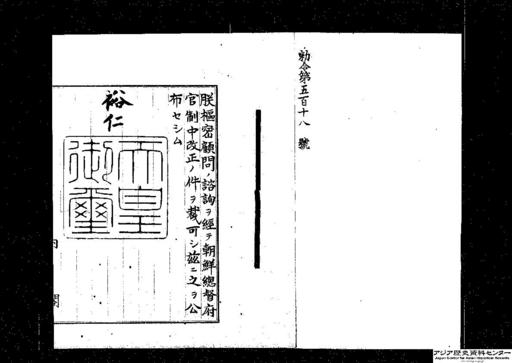 勅令第五百十八號
朕樞密顧問ノ諮詢ヲ經テ朝鮮總督府
官制中改正ノ件ヲ裁可シ茲ニ之ヲ公
布セシム
裕仁
天皇
御璽
内閣
アジア歴史資料センター
Japan Center for Asian Historical Records